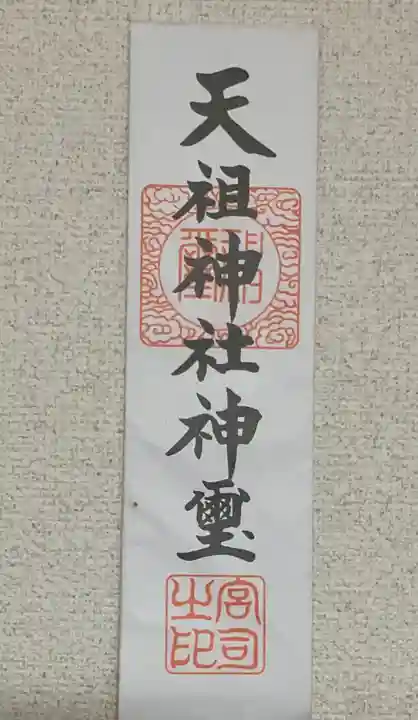 天祖神社神璽
宮司
之印